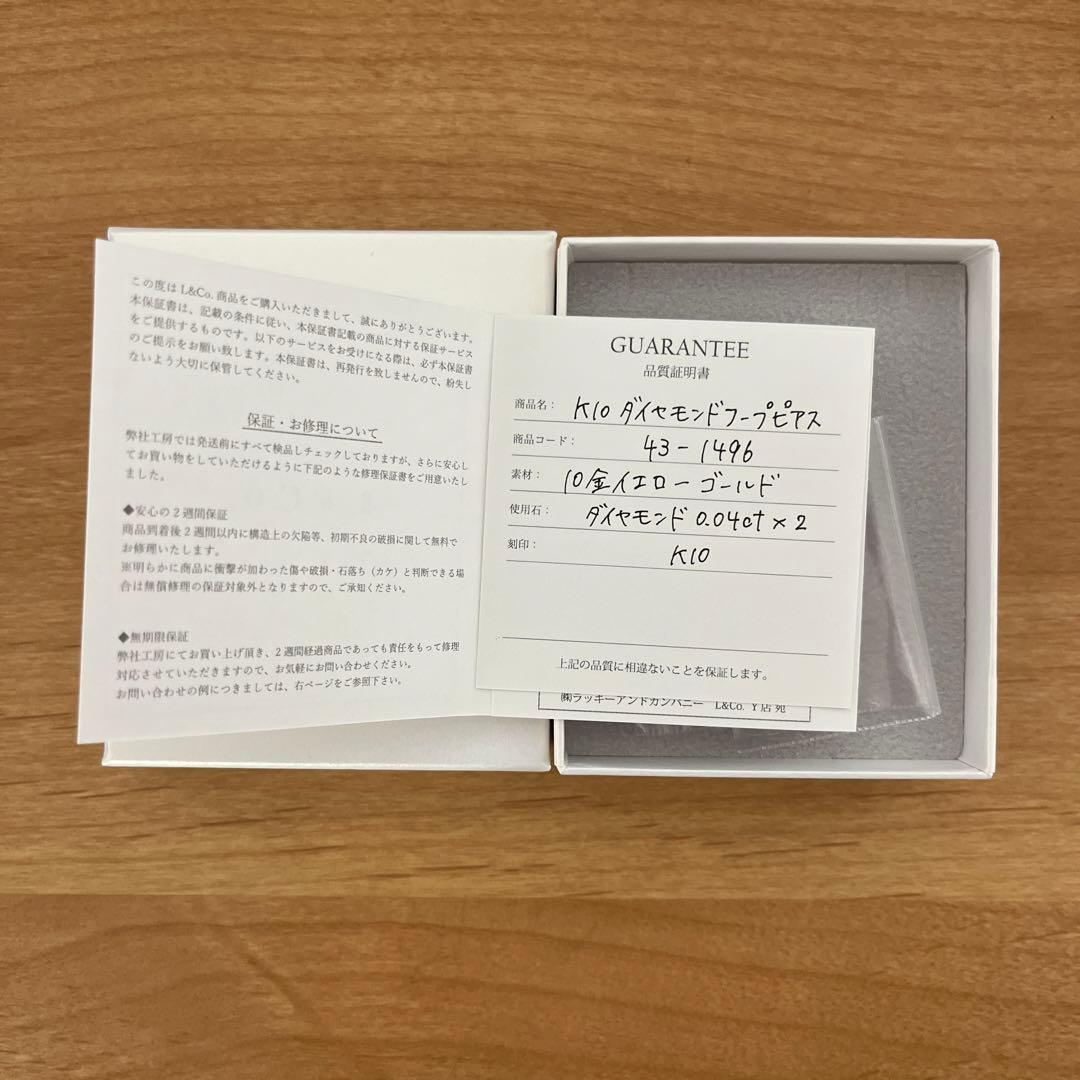 この度は L&Co. 商品をご購入いただきまして、誠にありがとうございます。
本保証書は、記載の条件に従い、本保証書記載の商品に対する保証サービス
をご提供するものです。以下のサービスをお受けになる際は、必ず本保証書
のご提示をお願い致します。本保証書は、再発行を致しませんので、紛失し
ないよう大切に保管してください。
保証・お修理について
弊社工房では発送前にすべて検品しチェックしておりますが、さらに安心し
てお買い物をしていただけるように下記のような修理保証書をご用意いたし
ました。
◆安心の2週間保証
商品到着後2週間以内に構造上の欠陥等、初期不良の破損に関して無料で
お修理いたします。
※明らかに商品に衝撃が加わった傷や破損・石落ち（カケ）と判断できる場
合は無償修理の保証対象外となりますので、ご承知ください。
◆無期限保証
弊社工房にてお買い上げ頂き、2週間経過商品であっても責任をもって修理
対応させていただきますので、お気軽にお問い合わせください。
お問い合わせの例につきましては、右ページをご参照下さい。
GUARANTEE
品質証明書
商品名： K10 ダイヤモンドフープピアス
商品コード： 43-1496
素材： 10金イエローゴールド
使用石： ダイヤモンド 0.04ct×2
刻印： K10
上記の品質に相違ないことを保証します。
㈱ラッキーアンドカンパニー L&Co. Y店 宛